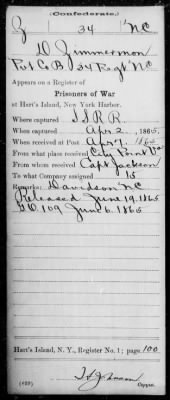 (Confederate.)
Z 34 NC
D Zimmermon
Pvt Co B, 34 Reg't NC
Appears on a Register of
Prisoners of War
at Hart's Island, New York Harbor.
Where captured S.S.R.R.
When captured Apr 2, 1865.
When received at Post Apr 7, 1865
From what place received City Point Va
From whom received Capt Jackson
To what company assigned 15
Remarks: Davidson NC
Released June 19, 1865
G.O. 109 June 6, 1865
Hart's Island, N. Y., Register No. 1; page 100
(639)
Copyist.